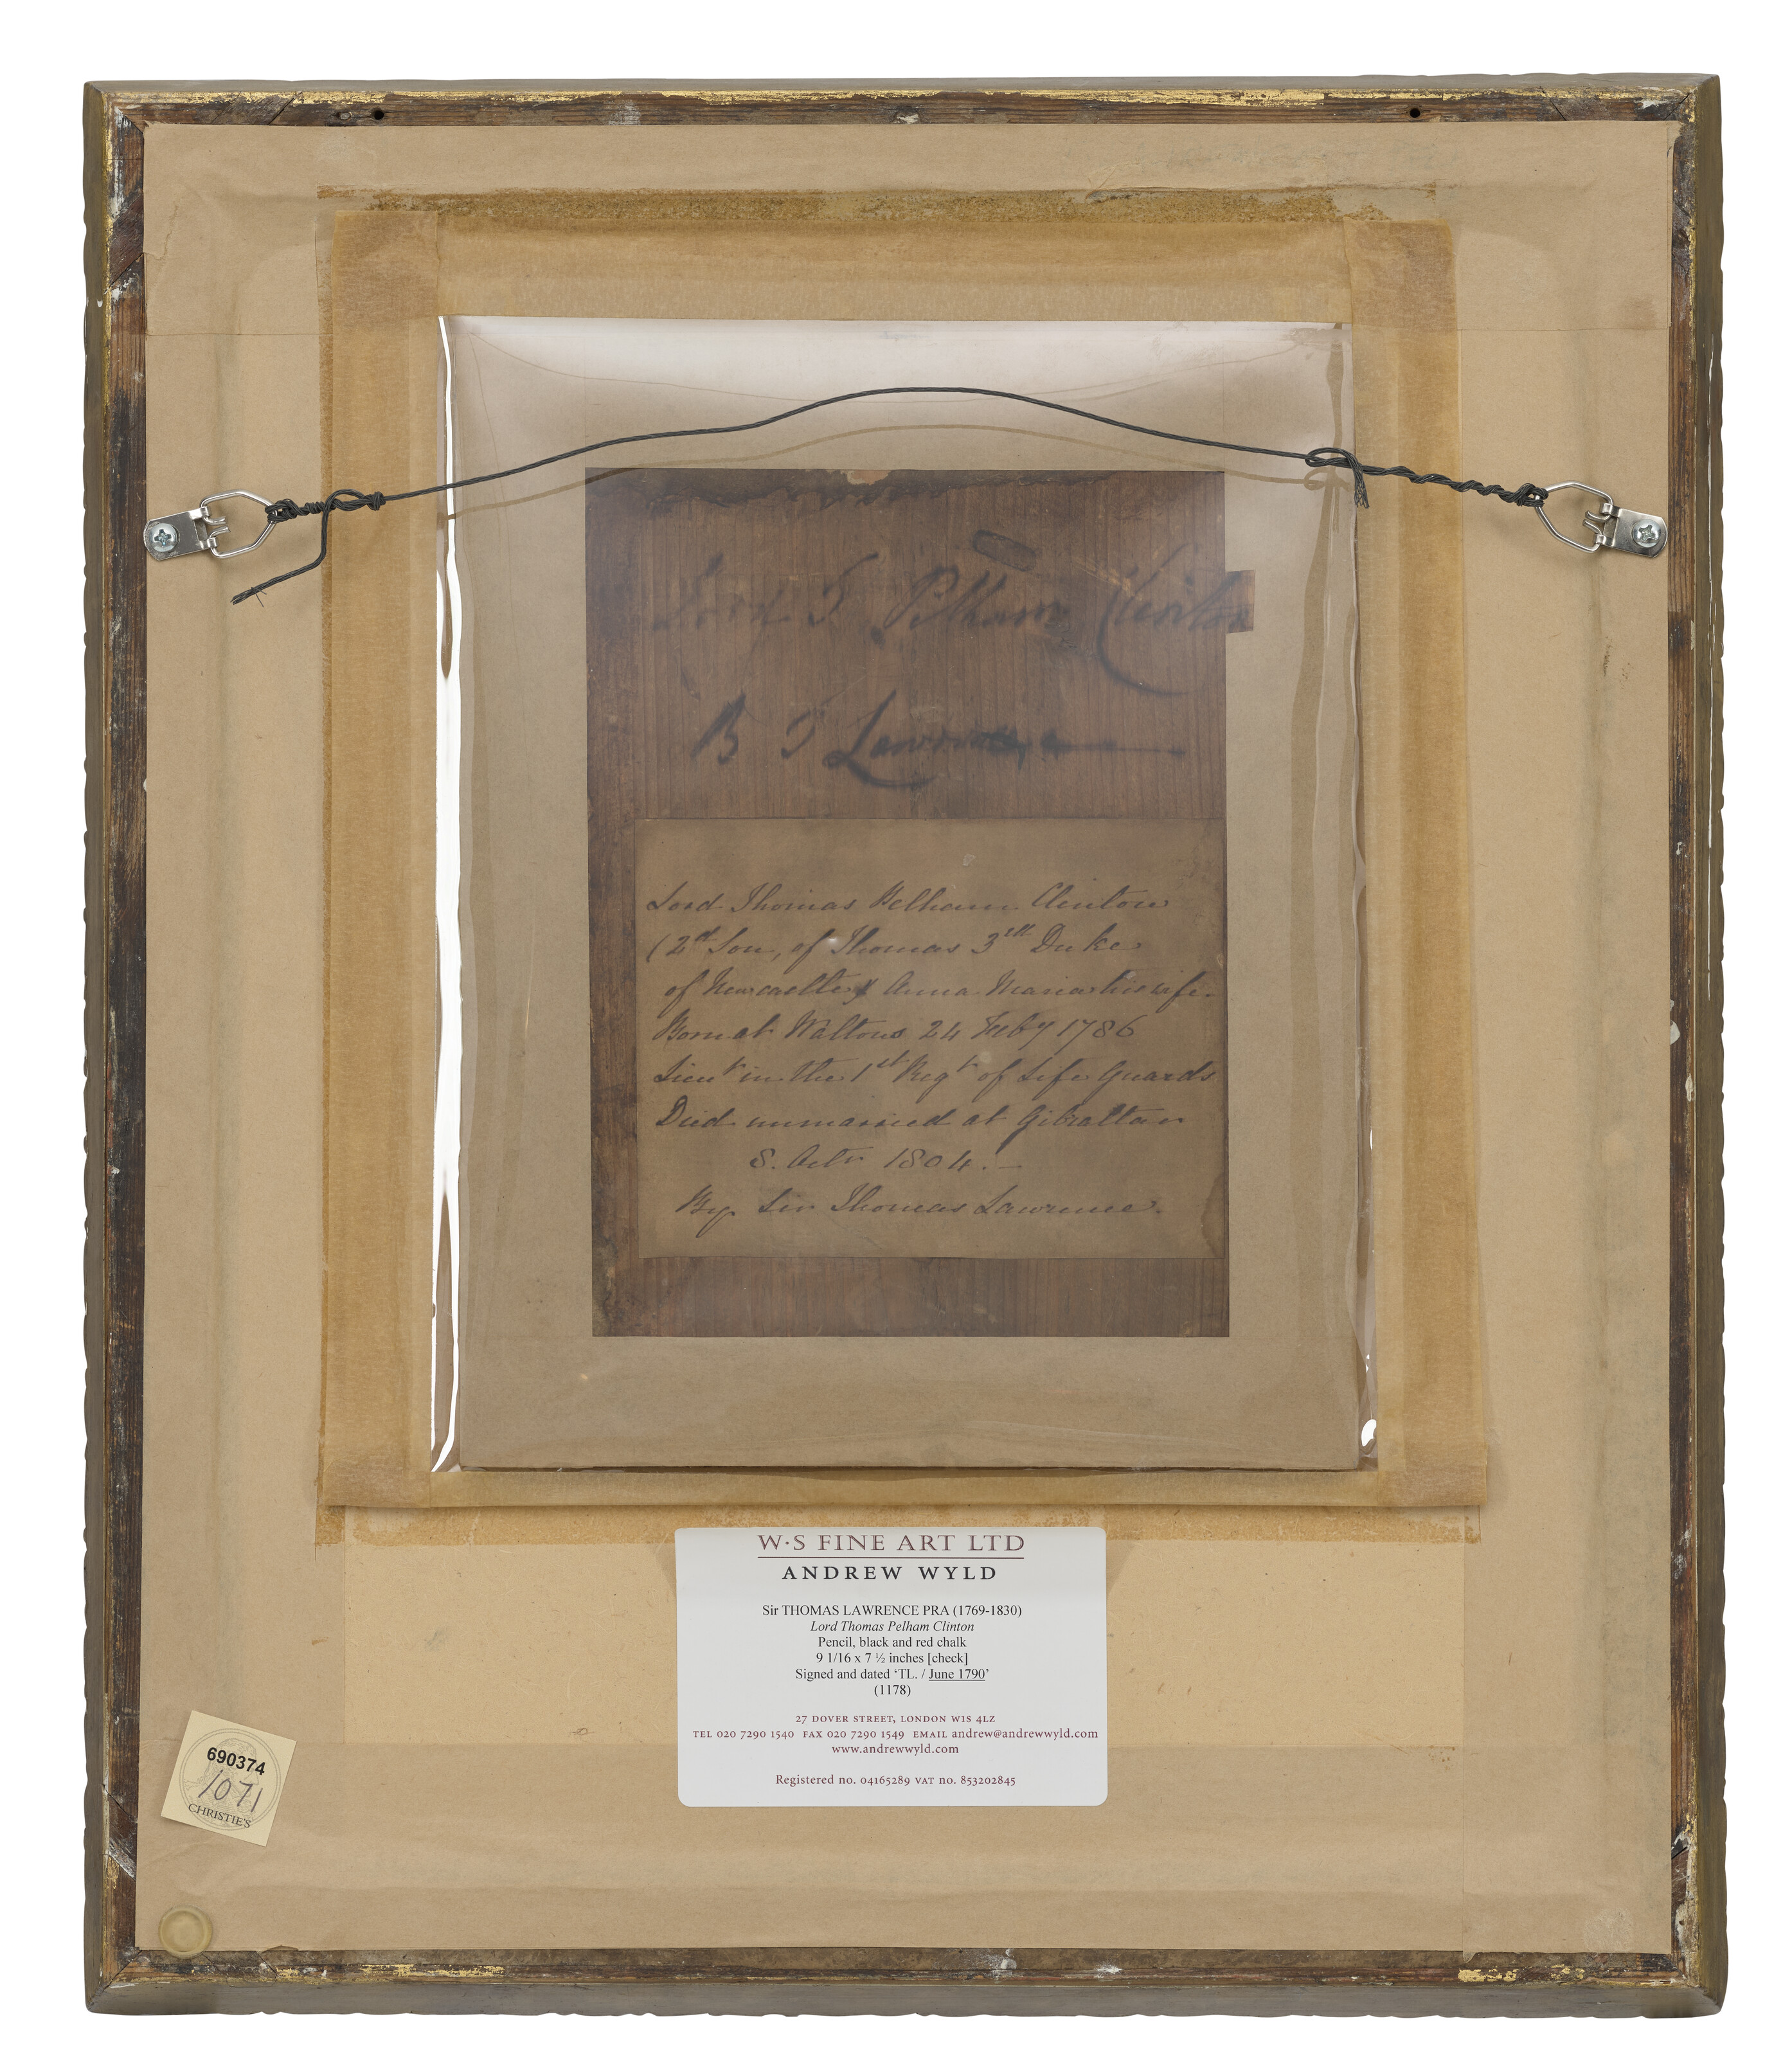 Lord T Pelham Clinton
B T Lawrence
Lord Thomas Pelham Clinton
(2nd Son, of Thomas 3rd Duke
of Newcastle & Anna Maria his wife
Born at Waltons 24 Feby 1786
Lieut in the 1st Regt of Life Guards
Died unmarried at Gibraltar
8. Octr 1804.—
By Sir Thomas Lawrence.
W·S FINE ART LTD
ANDREW WYLD
Sir THOMAS LAWRENCE PRA (1769-1830)
Lord Thomas Pelham Clinton
Pencil, black and red chalk
9 1/16 x 7 ½ inches [check]
Signed and dated ‘TL. / June 1790’
(1178)
27 DOVER STREET, LONDON W1S 4LZ
TEL 020 7290 1540 FAX 020 7290 1549 EMAIL andrew@andrewwyld.com
www.andrewwyld.com
Registered no. 04165289 VAT no. 853202845
690374
1071
CHRISTIE'S